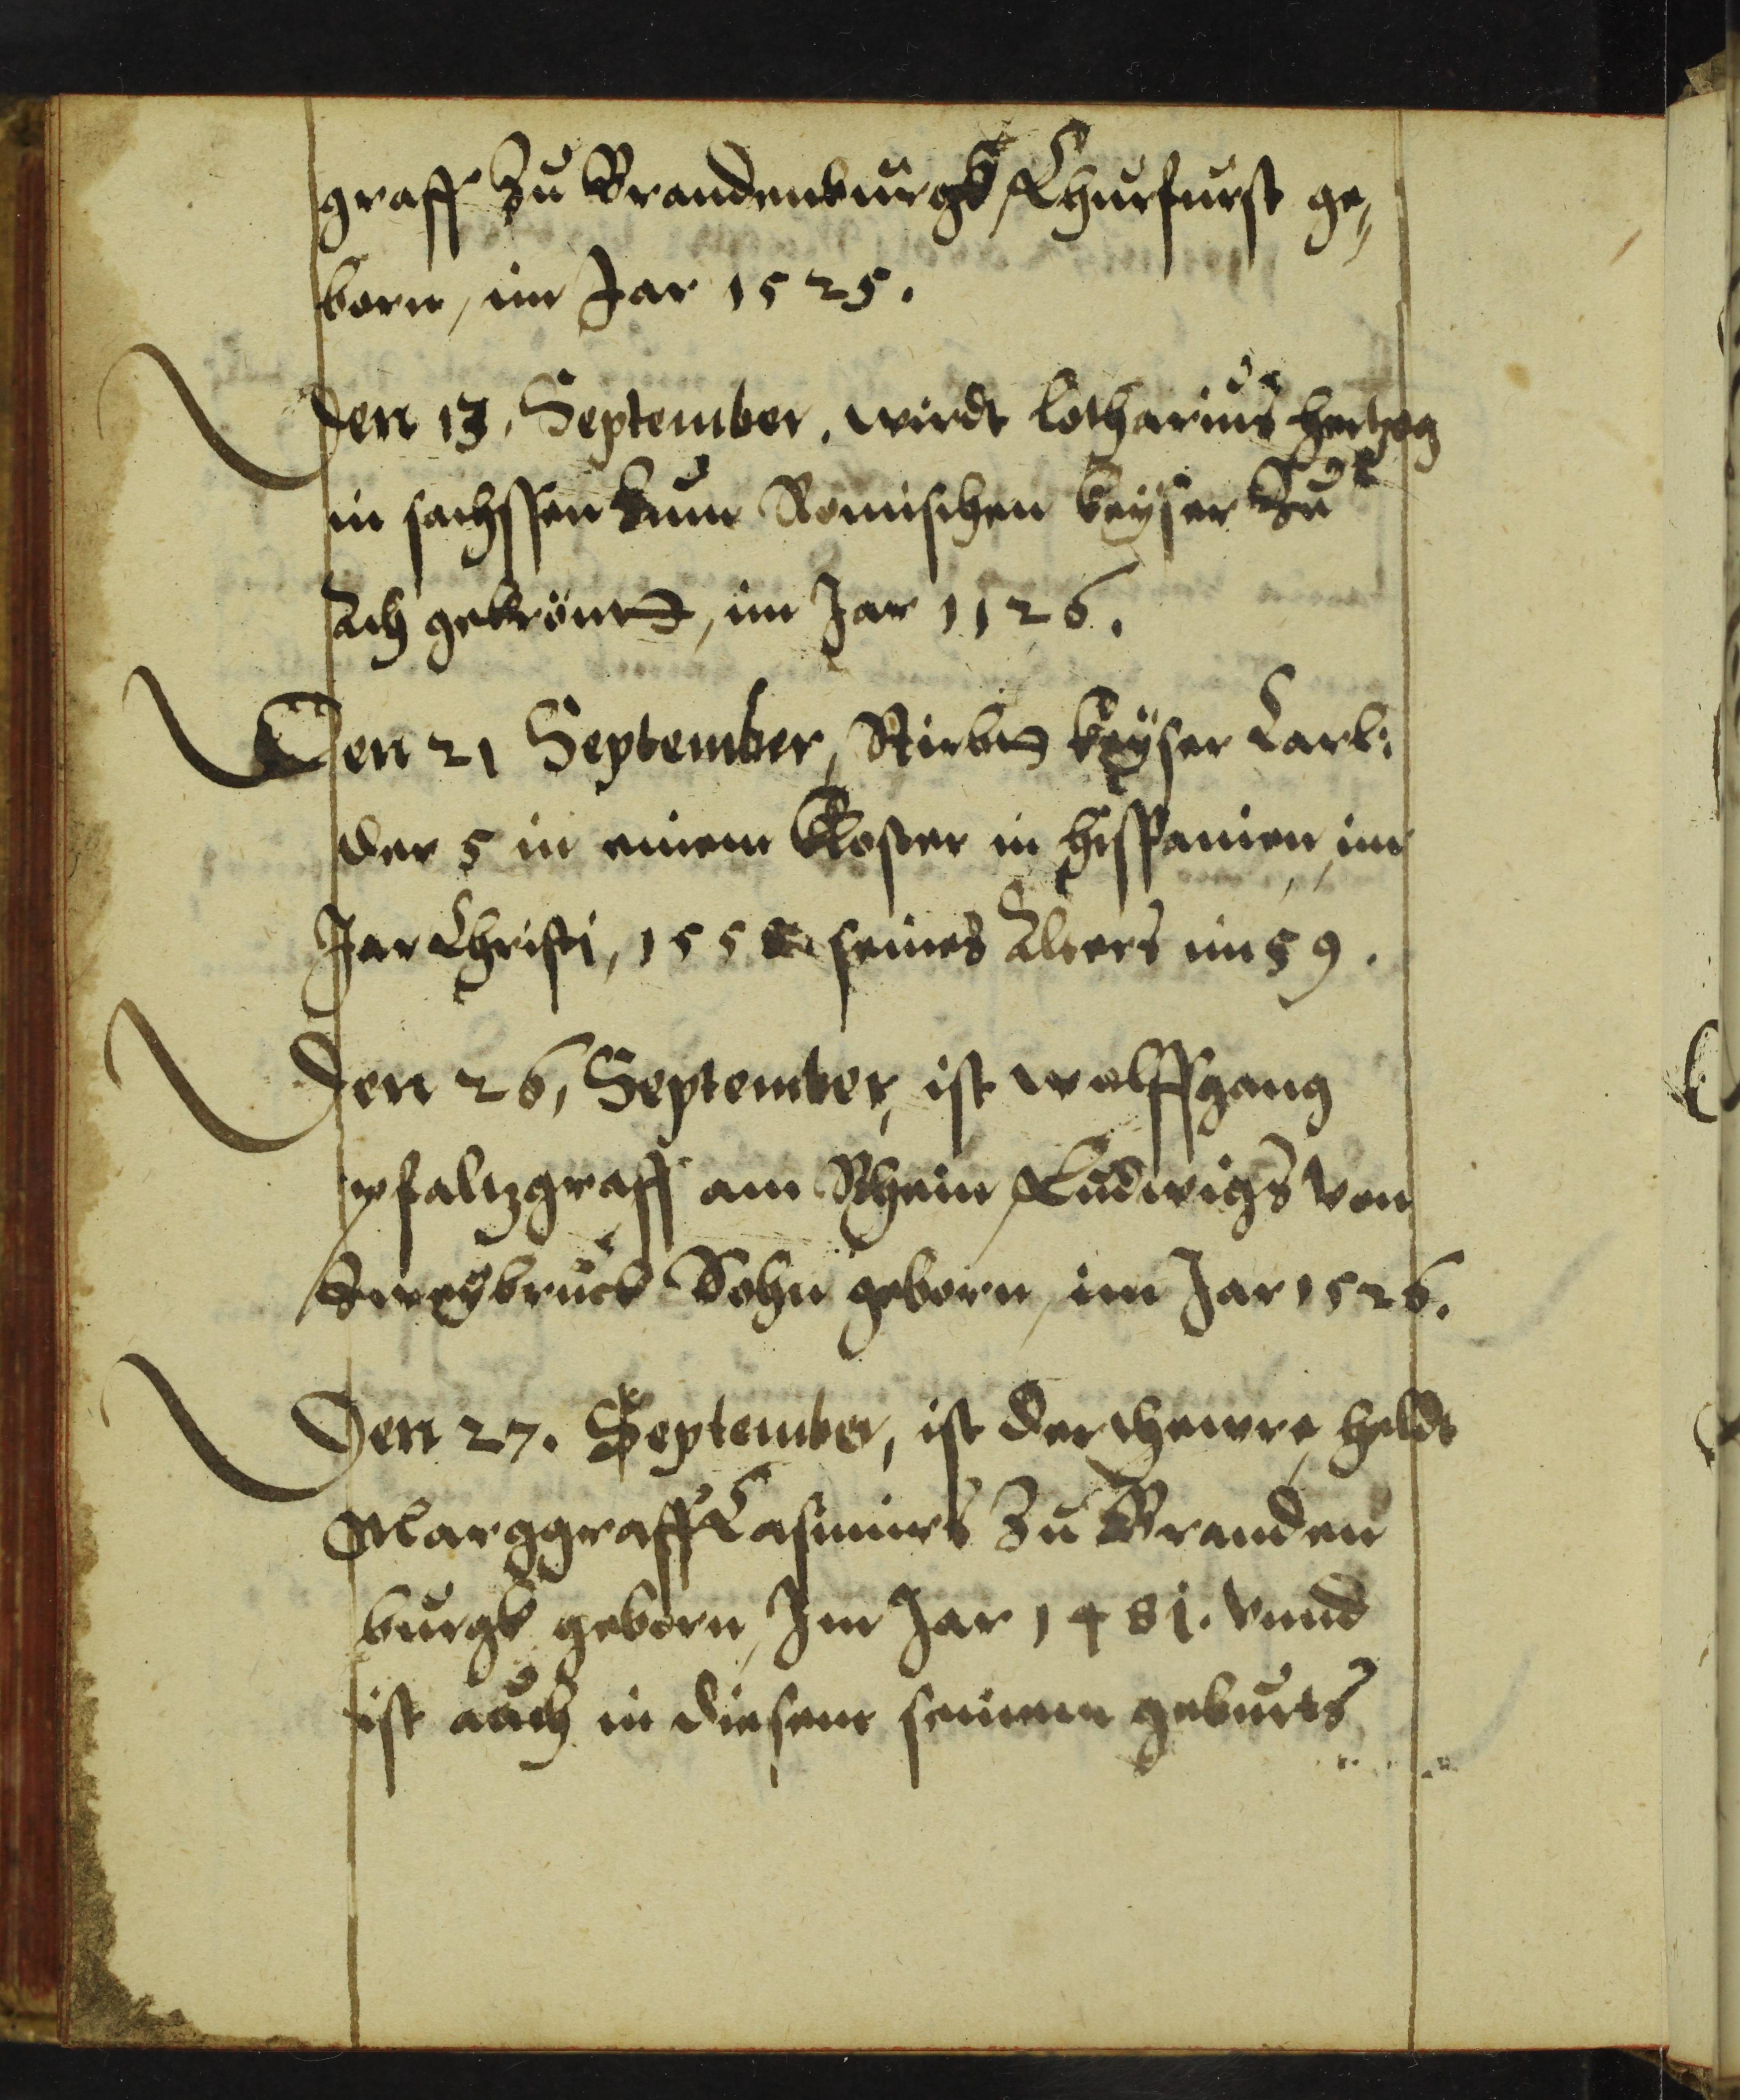 graff Zu Brandenburgk, Churfurst ge„
born, im Jar 1525.
Den 13. September. wirdt Lotharius hertzog
in sachssen Zum Romischen keÿser Zu
Ach gekrönt, im Jar 1126.
Den 21 September, Stirbt keÿser Carl:
der 5 in einem Kloster in hispanien, im
Jar Christi, 1558 seines Alters im 59.
Den 26, September, ist wolffgang
pfaltzgraff am Rhein, Ludwigs von
Zweÿbruck Sohn geborn, im Jar 1526.
Den 27. September, ist der thewre heldt
Marggraff Casimirs Zu Branden
burgk geborn, Im Jar 1481. vnnd
ist auch in diesem seinem geburts